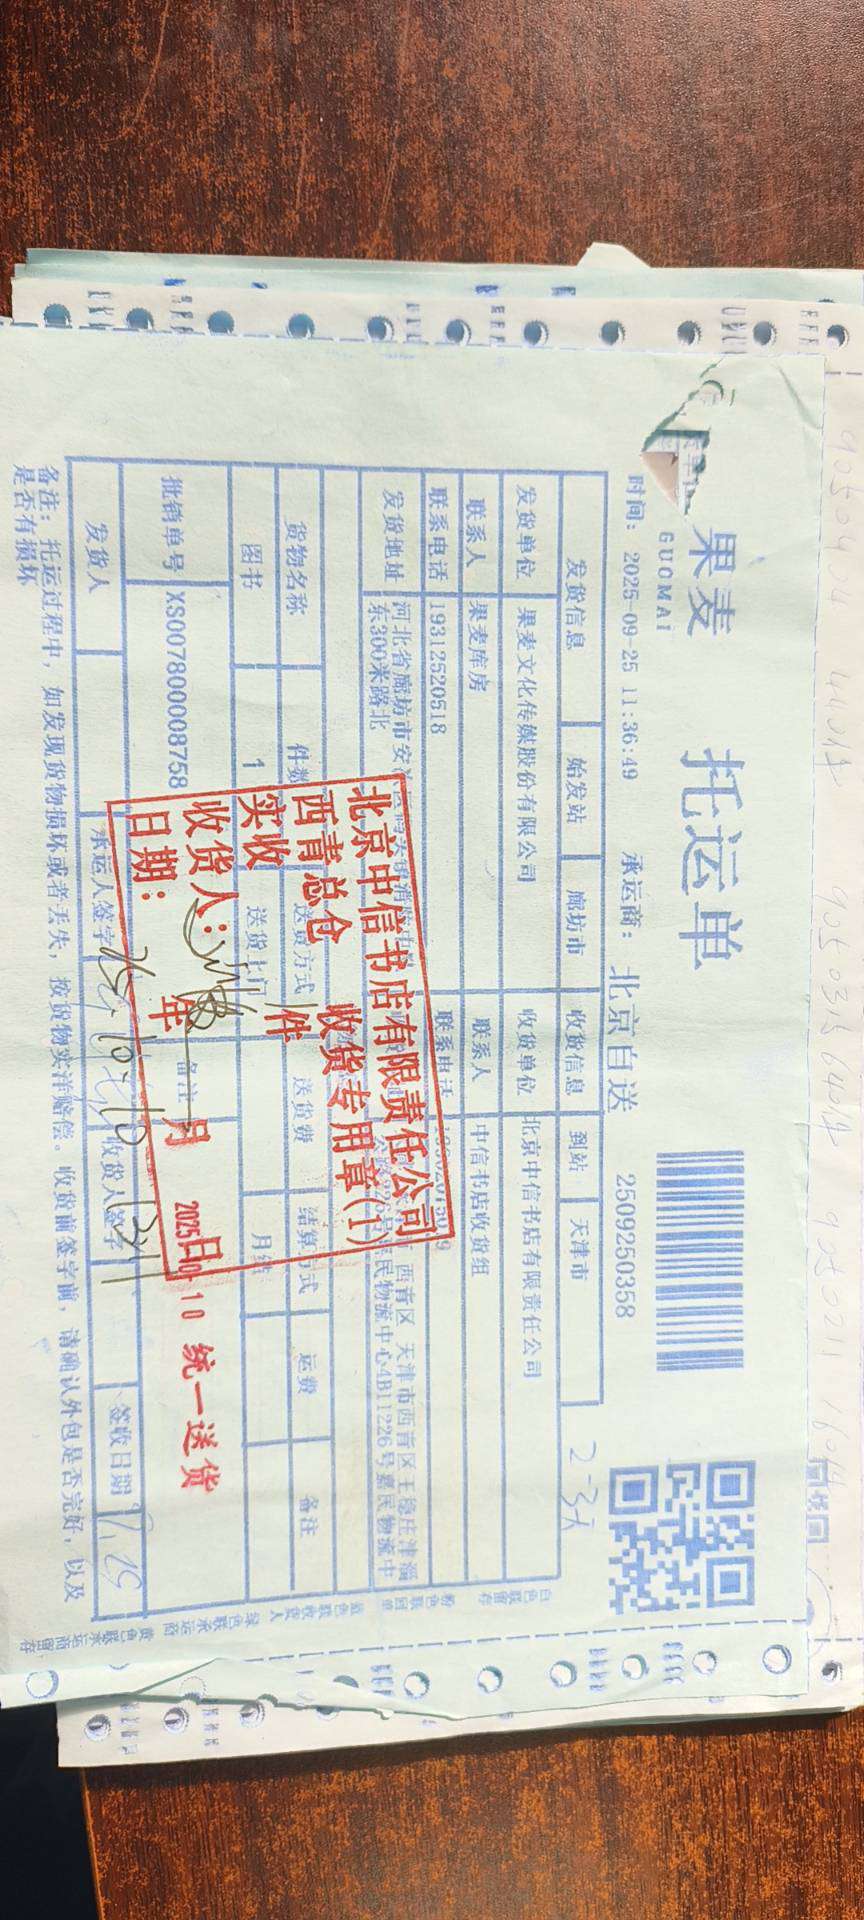 果麦
GUOMAI
托运单
时间: 2025-09-25 11:36:49
承运商: 北京自送
2509250358
发货信息 始发站 廊坊市 收货信息 到站 天津市
2-3天
发货单位 果麦文化传媒股份有限公司 收货单位 北京中信书店有限责任公司
联系人 果麦库房 联系人 中信书店收货组
联系电话 19312520518 联系电话
发货地址 河北省廊坊市安
东300米路北
西青区 天津市西青区王稳庄津淄
公路226号嘉民物流中心4B11226号嘉民物流中
货物名称 件数 送货方式 送货费 结算方式 运费 备注
图书 1 送货上门 月结
批销单号 XS007800008758 备注
发货人 承运人签字 收货人签字 签收日期
备注: 托运过程中, 如发现货物损坏或者丢失, 按货物实洋赔偿。收货前签字前, 请确认外包是否完好, 以及
是否有损坏
北京中信书店有限责任公司
西青总仓 收货专用章(1)
实收 件
收货人:
日期: 年 月 日
统一送货
白色联留存
粉色联回单
蓝色联收货人
绿色联承运商
黄色联承运商留存